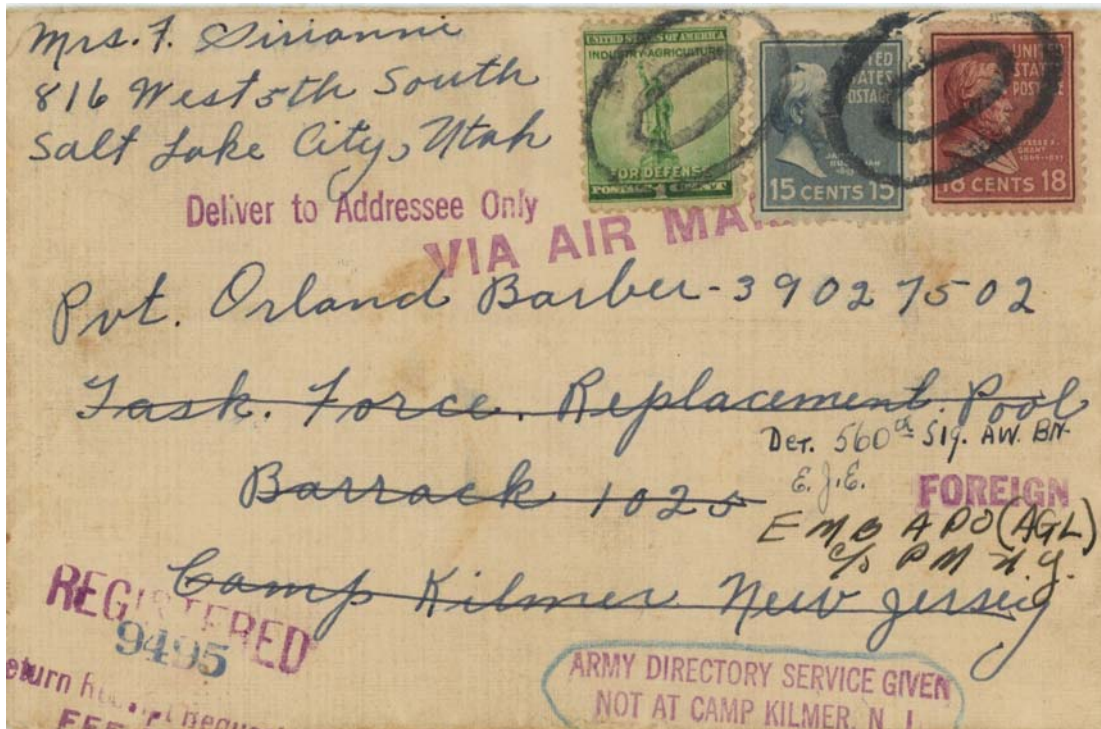 Mrs. F. Sirianni
816 West 5th South
Salt Lake City, Utah
UNITED STATES OF AMERICA
INDUSTRY·AGRICULTURE
FOR DEFENSE
POSTAGE 1 CENT
UNITED
STATES
POSTAGE
15 CENTS 15
UNITED
STATES
POSTAGE
18 CENTS 18
Deliver to Addressee Only
VIA AIR MAIL
Pvt. Orland Barber - 39027502
Task. Force. Replacement. Pool
Det. 560th Sig. AW. BN.
Barrack 1025
E.J.E.
FOREIGN
E M B A P O (AGL)
c/o P M N.Y.
Camp Kilmer New Jersey
REGISTERED
9495
ARMY DIRECTORY SERVICE GIVEN
NOT AT CAMP KILMER, N. J.